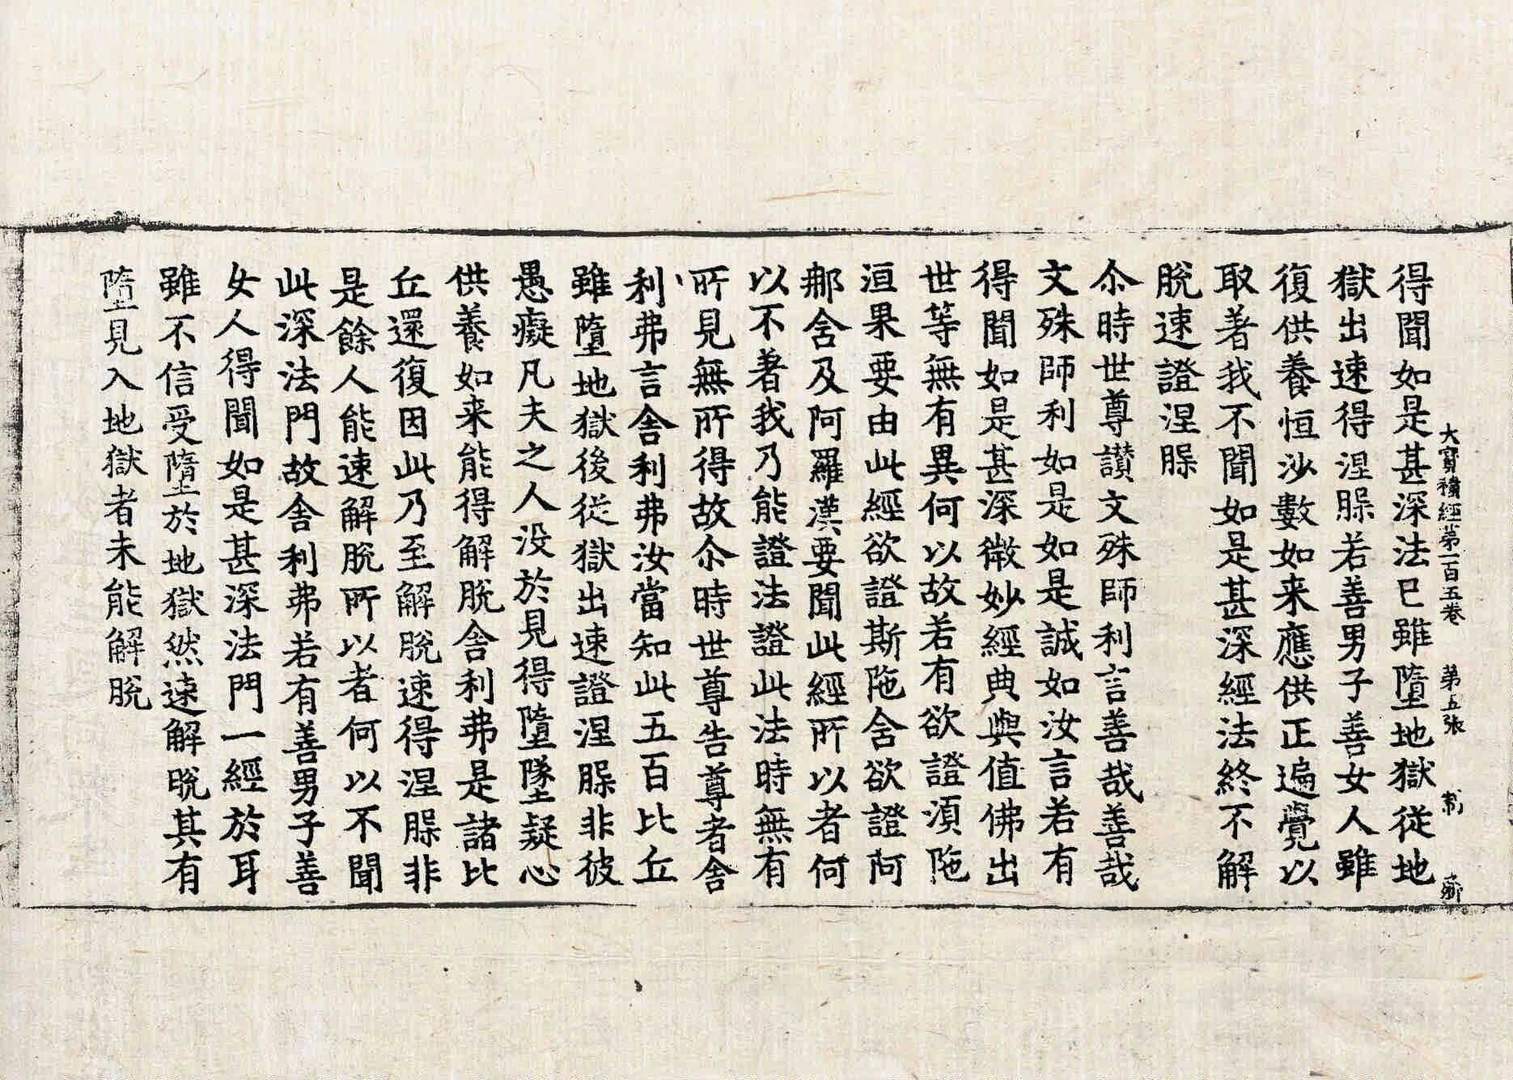 大寶積經第一百五卷　第五張　制　齊
得聞如是甚深法已雖墮地獄從地
獄出速得涅槃若善男子善女人雖
復供養恒沙數如来應供正遍覺以
取著我不聞如是甚深經法終不解
脫速證涅槃
尒時世尊讃文殊師利言善哉善哉
文殊師利如是如是誠如汝言若有
得聞如是甚深微妙經典與值佛出
世等無有異何以故若有欲證湏陁
洹果要由此經欲證斯陁含欲證阿
那含及阿羅漢要聞此經所以者何
以不著我乃能證法證此法時無有
所見無所得故尒時世尊告尊者舍
利弗言舍利弗汝當知此五百比丘
雖墮地獄後從獄出速證涅槃非彼
愚癡凡夫之人没於見得墮墜疑心
供養如来能得解脫舍利弗是諸比
丘還復因此乃至解脫速得涅槃非
是餘人能速解脫所以者何以不聞
此深法門故舍利弗若有善男子善
女人得聞如是甚深法門一經於耳
雖不信受墮於地獄然速解脫其有
墮見入地獄者未能解脫